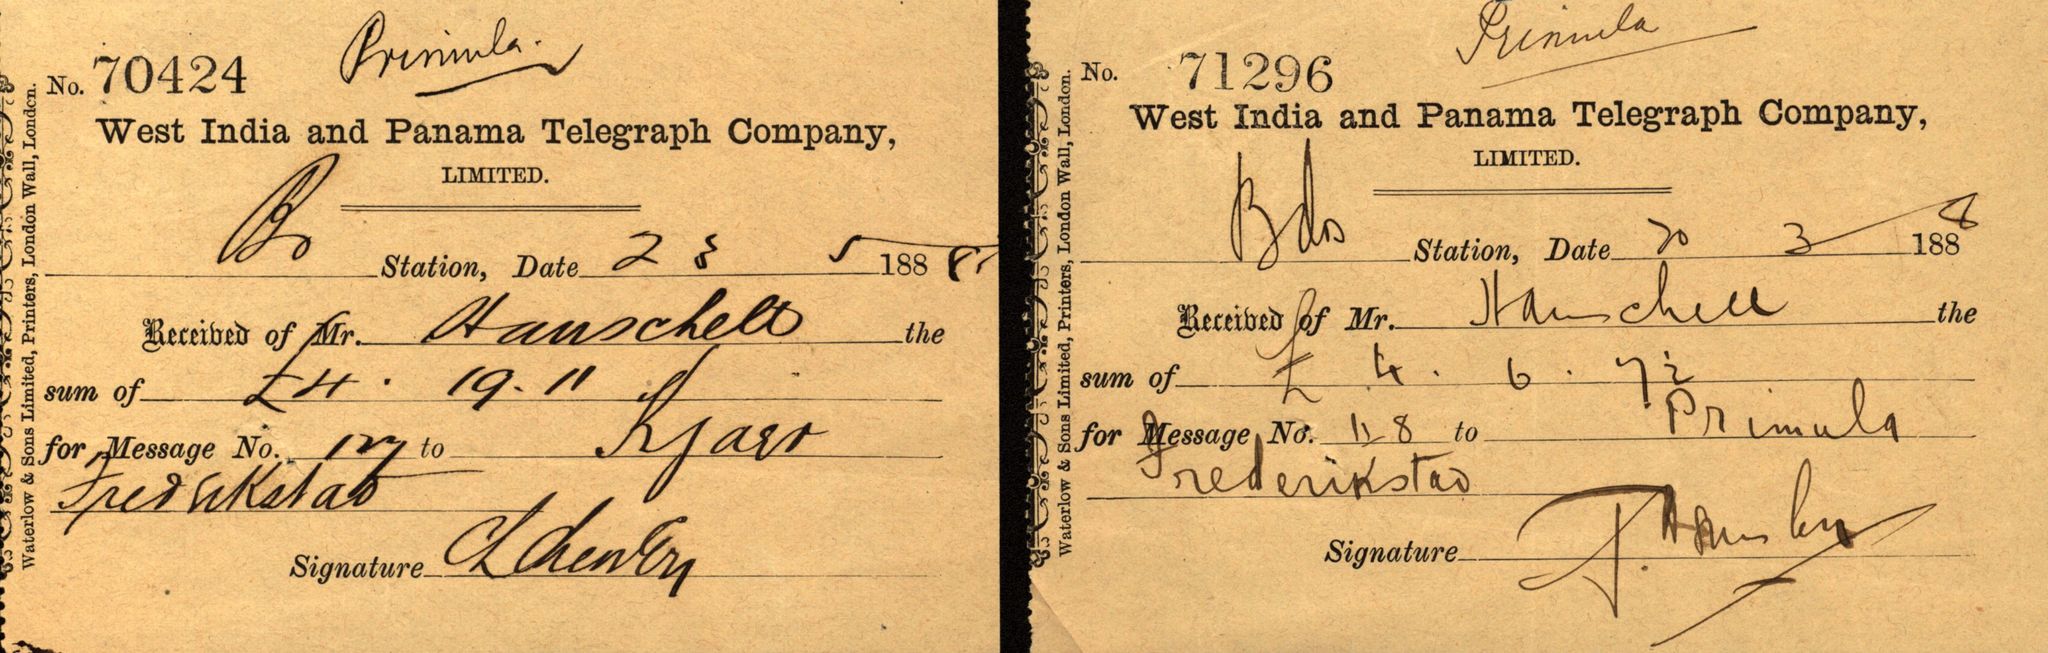 Primula.
No. 70424
West India and Panama Telegraph Company,
LIMITED.
Station, Date 23 5 188
Received of Mr. Hanschell the
sum of £4. 19. 11
for Message No. to
Fredrikstad
Signature
Waterlow & Sons Limited, Printers, London Wall, London.
Primula
No. 71296
West India and Panama Telegraph Company,
LIMITED.
Bdos Station, Date 20 3 1888
Received of Mr. Hanschell the
sum of £ 4. 6. 7½
for Message No. 118 to Primula
Frederikstad
Signature
Waterlow & Sons Limited, Printers, London Wall, London.